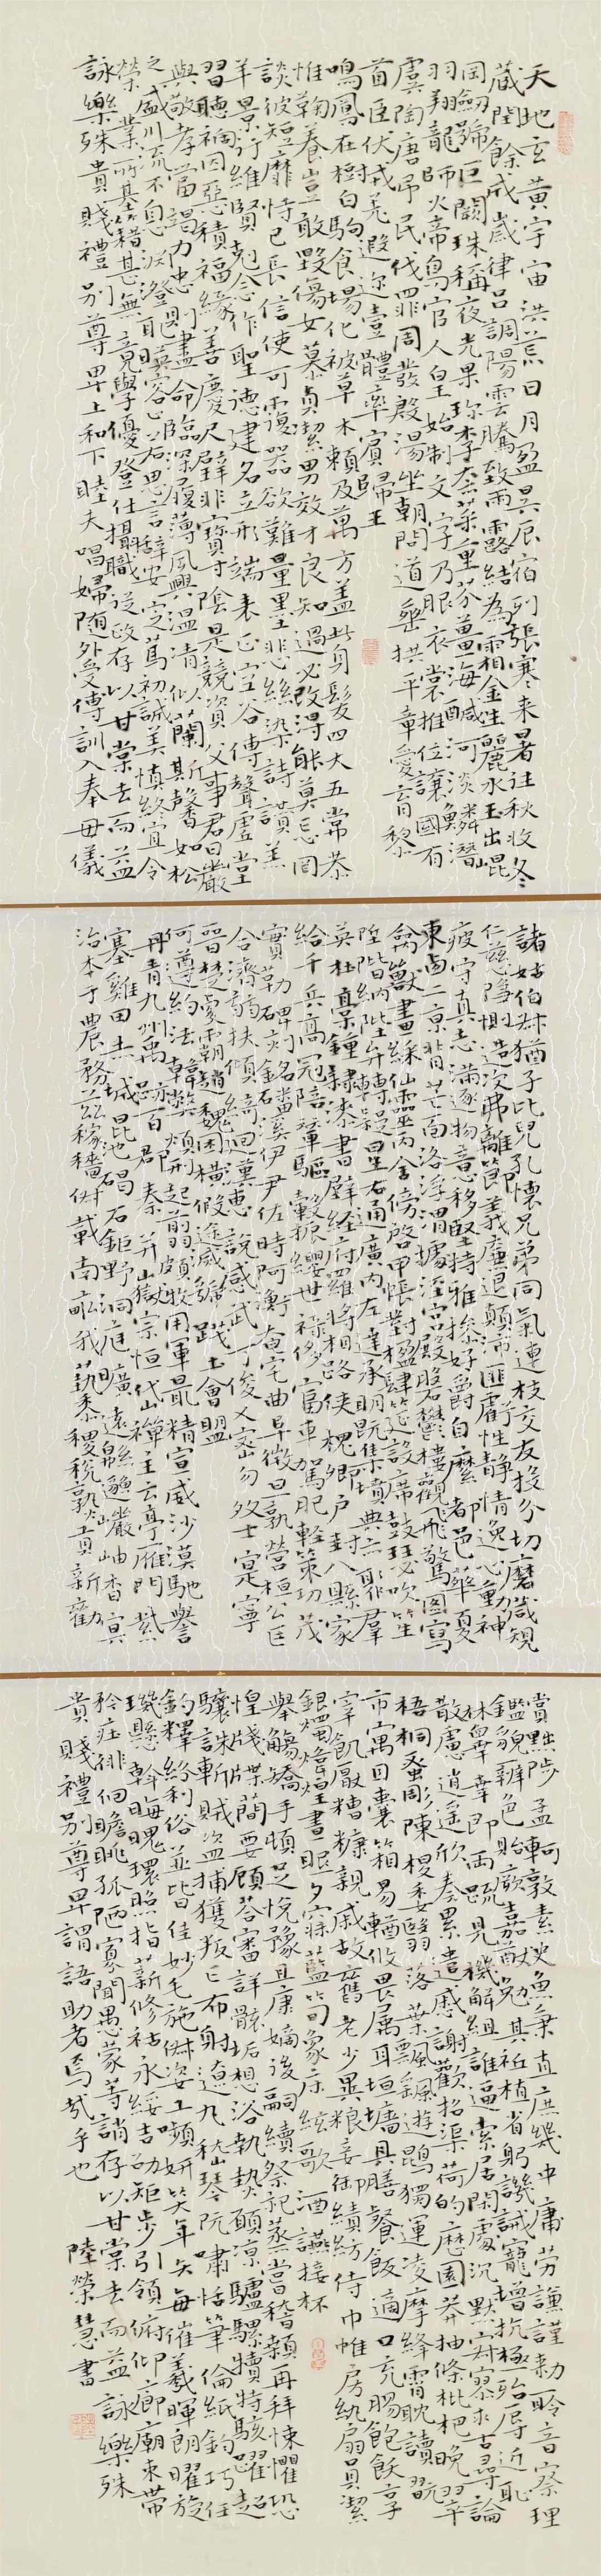 天地玄黄宇宙洪荒日月盈昃辰宿列張寒来暑往秋收冬
藏閏餘成歲律吕調陽雲騰致雨露結為霜金生麗水玉出崐
岡劔號巨闕珠稱夜光果珍李柰菜重芥薑海鹹河淡鱗潛
羽翔龍師火帝鳥官人皇始制文字乃服衣裳推位讓國有
虞陶唐弔民伐罪周發殷湯坐朝問道垂拱平章愛育黎
首臣伏戎羌遐迩壹體率賓歸王
鳴鳳在樹白駒食場化被草木賴及萬方盖此身髮四大五常恭
惟鞠養豈敢毀傷女慕貞絜男效才良知過必改得能莫忘罔
談彼短靡恃己長信使可覆器欲難量墨悲絲染詩讚羔
羊景行維賢剋念作聖德建名立形端表正空谷傳聲虛堂
習聽禍因惡積福緣善慶尺璧非寶寸陰是競資父事君曰嚴
與敬孝當竭力忠則盡命臨深履薄夙興温清似蘭斯馨如松
之盛川流不息淵澄取暎容止若思言辭安定篤初誠美慎終宜令
榮業所基籍甚無竟學優登仕攝職從政存以甘棠去而益
詠樂殊貴賤禮别尊卑上和下睦夫唱婦隨外受傅訓入奉母儀
諸姑伯叔猶子比兒孔懷兄弟同氣連枝交友投分切磨箴規
仁慈隱惻造次弗離節義廉退顛沛匪虧性静情逸心動神
疲守真志滿逐物意移堅持雅操好爵自縻都邑華夏
東西二京背芒面洛浮渭據涇宫殿盤鬱樓觀飛驚圖寫
禽獸畫綵仙靈丙舍傍啓甲帳對楹肆筵設席鼓瑟吹笙
陞階納陛弁轉疑星右通廣内左達承明既集墳典亦聚群
英杜稾鍾隸漆書壁經府羅將相路俠槐卿户封八縣家
給千兵高冠陪輦驅轂振纓世禄侈富車駕肥輕策功茂
實勒碑刻銘磻溪伊尹佐時阿衡奄宅曲阜微旦孰營桓公匡
合濟弱扶傾綺迴漢惠說感武丁俊乂密勿多士寔寧
晉楚更霸趙魏困横假途滅虢踐土會盟
何遵約法韓弊煩刑起翦頗牧用軍最精宣威沙漠馳譽
丹青九州禹跡百郡秦并嶽宗恒岱禪主云亭雁門紫
塞雞田赤城昆池碣石鉅野洞庭曠遠緜邈巖岫杳冥
治本于農務兹稼穡俶載南畝我藝黍稷稅孰貢新勸
賞黜陟孟軻敦素史魚秉直庶幾中庸勞謙謹勅聆音察理
鑑貌辯色貽厥嘉猷勉其祗植省躬譏誡寵增抗極殆辱近恥
林皋幸即兩疏見機解組誰逼索居閑處沉默寂寥求古尋論
散慮逍遥欣奏累遣慼謝歡招渠荷的歷園莽抽條枇杷晚翠
梧桐蚤彫陳根委翳落葉飄颻遊鵾獨運凌摩絳霄耽讀翫
市寓目囊箱易輶攸畏属耳垣墻具膳飡飯適口充腸飽飫享
宰飢厭糟糠親戚故舊老少異粮妾御績紡侍巾帷房紈扇員潔
銀燭煒煌晝眠夕寐藍筍象床絃歌酒讌接杯
舉觴矯手頓足悅豫且康嫡後嗣續祭祀蒸嘗稽顙再拜悚懼恐
惶牋牒簡要顧答審詳骸垢想浴執熱願凉驢騾犢特駭躍超
驤誅斬賊盗捕獲叛亡布射遼丸嵇琴阮嘯恬筆倫紙鈞巧任
釣釋紛利俗並皆佳妙毛施俶姿工顰妍笑年矢每催羲暉朗曜旋
璣懸斡晦魄環照指薪修祜永綏吉劭矩步引領俯仰廊廟束帶
矜莊徘徊瞻眺孤陋寡聞愚蒙等誚存以甘棠去而益詠樂殊
貴賤禮别尊卑謂語助者焉哉乎也 陸榮慧書